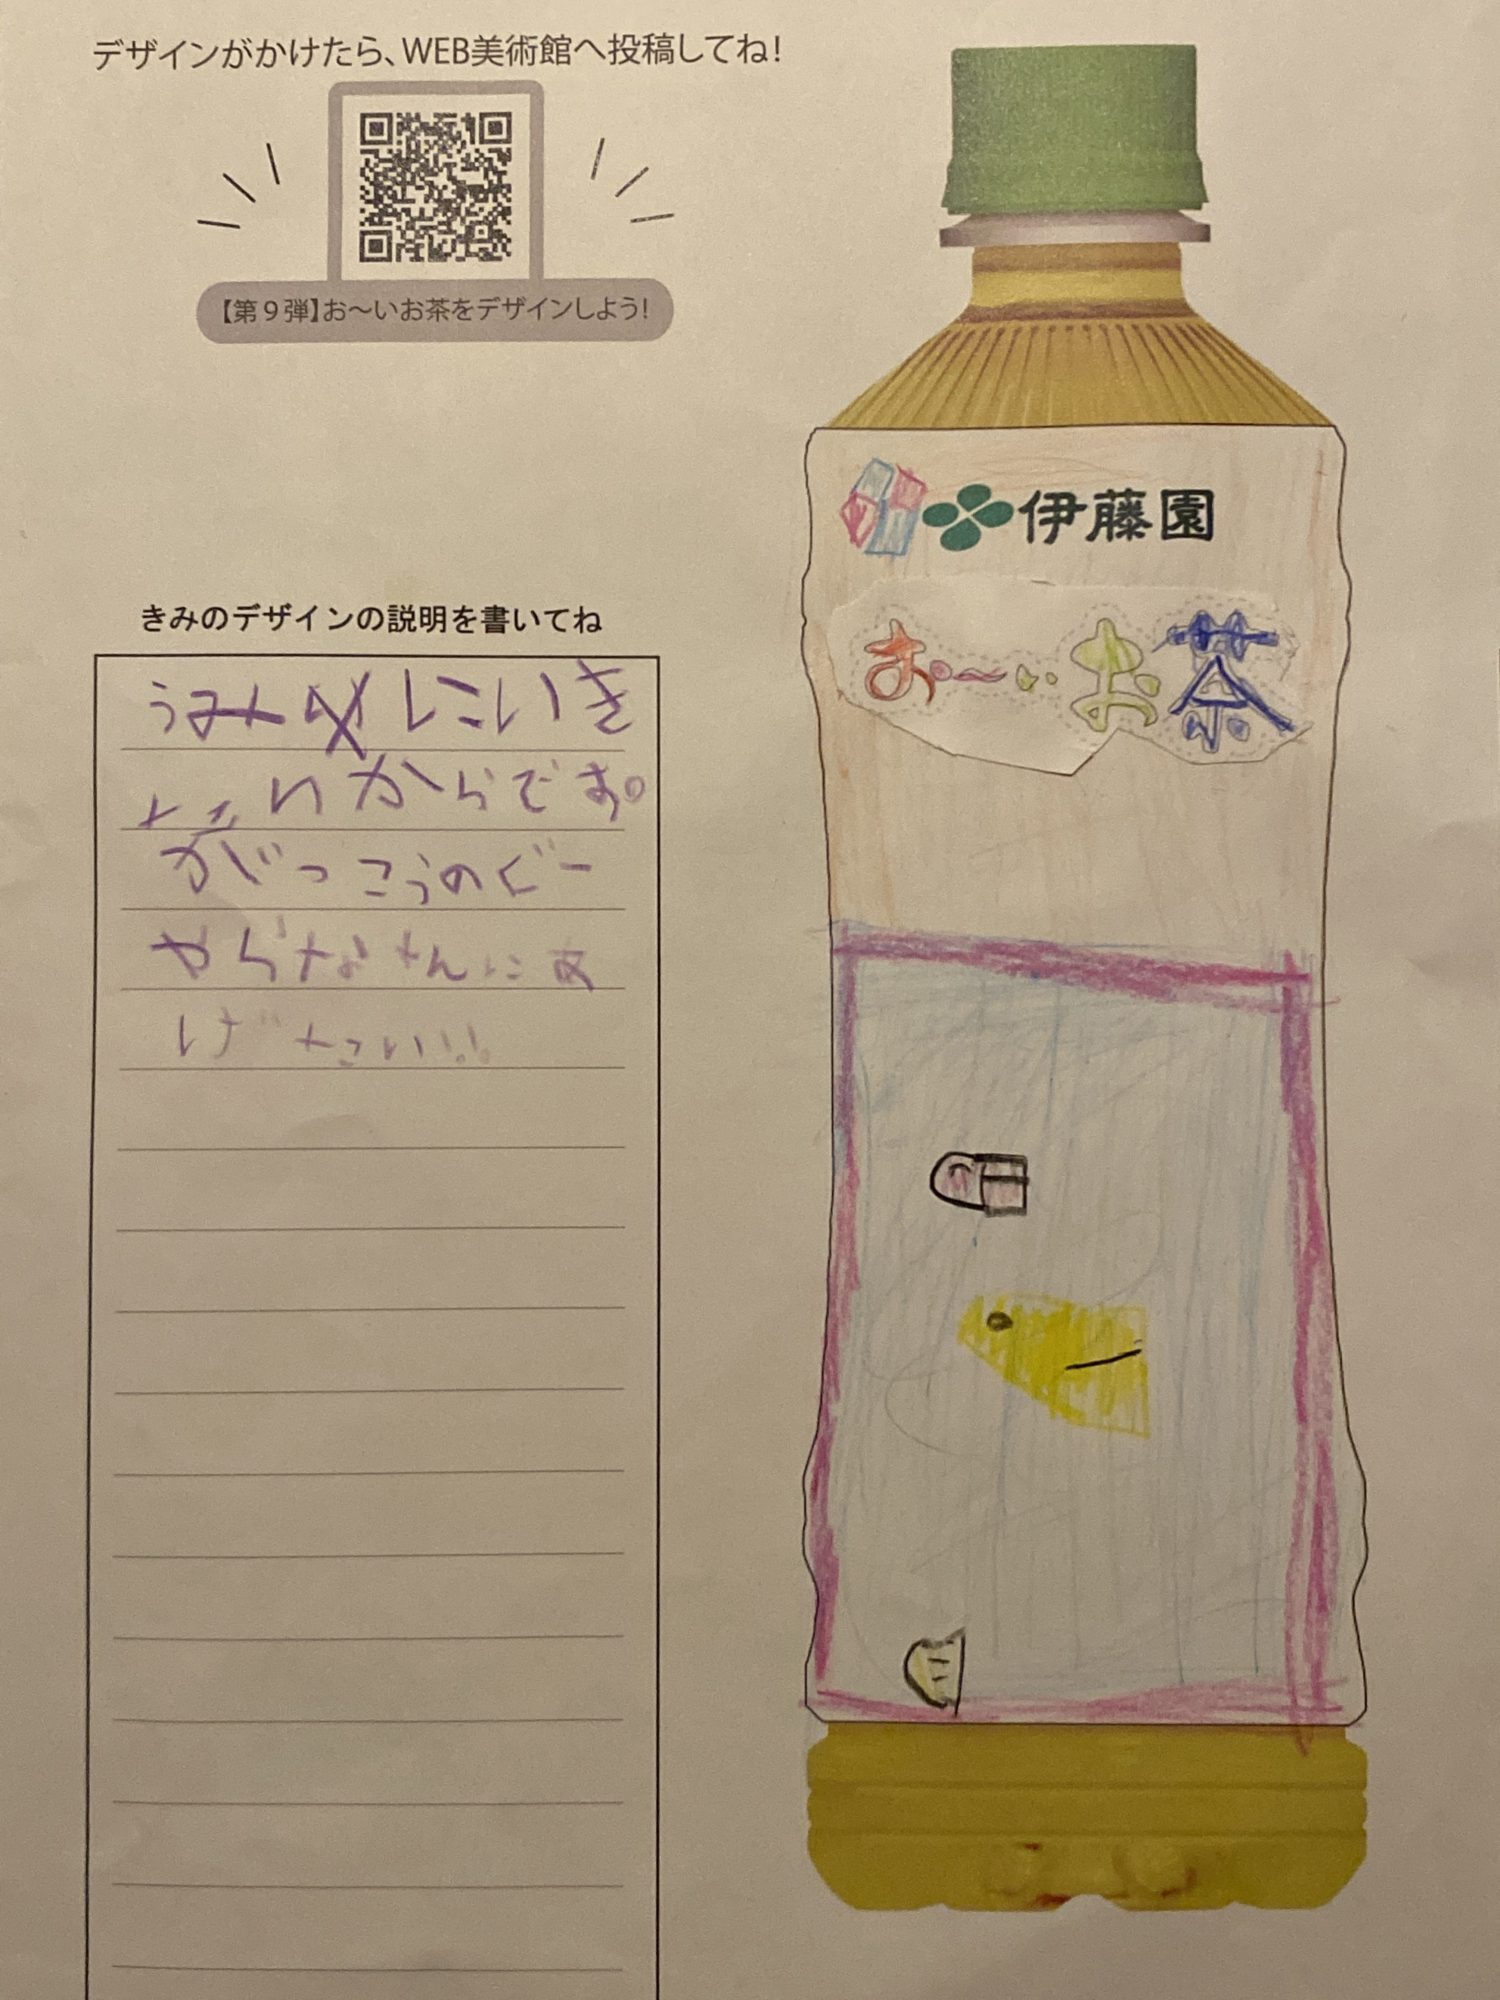 デザインがかけたら、WEB美術館へ投稿してね!
【第9弾】お〜いお茶をデザインしよう!
伊藤園
お〜いお茶
きみのデザインの説明を書いてね
うみにいき
たいからです。
がっこうのぐー
やらなさんにあ
げたい!!